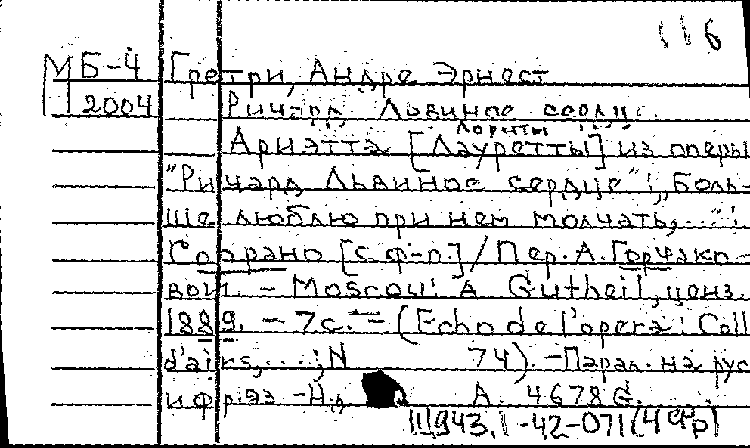 116
МБ-4 Гретри, Андре Эрнест
2004 Ричард Львиное сердце.
Лоретты
Ариэтта [Лауретты] из оперы
"Ричард Львиное сердце": „Боль-
ше люблю при нем молчать,...":
Сопрано [с ф-п] / Пер. А. Горчако-
вой. - Moscou: A Gutheil, ценз.
1889. - 7с. - (Echo de l'opera: Coll
d'airs,...; N 74). - Парал. на рус
и фр. яз - Н.д. A. 4678 G.
Ш943.1-42-071(4Фр)